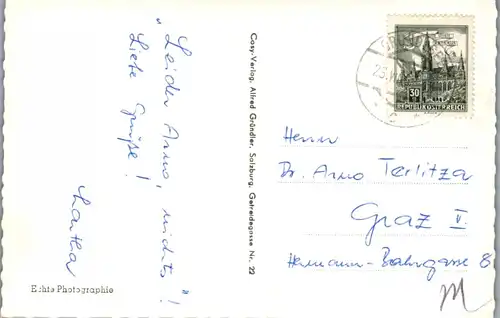 "Leider Arno, nichts"!
Liebe Grüße!
Martha
Echte Photographie
Cosy-Verlag, Alfred Gründler, Salzburg, Getreidegasse Nr. 22
30
REPUBLIK ÖSTERREICH
Herrn
Dr. Arno Terlitza
Graz V.
Hermann-Bahrgasse 8
M